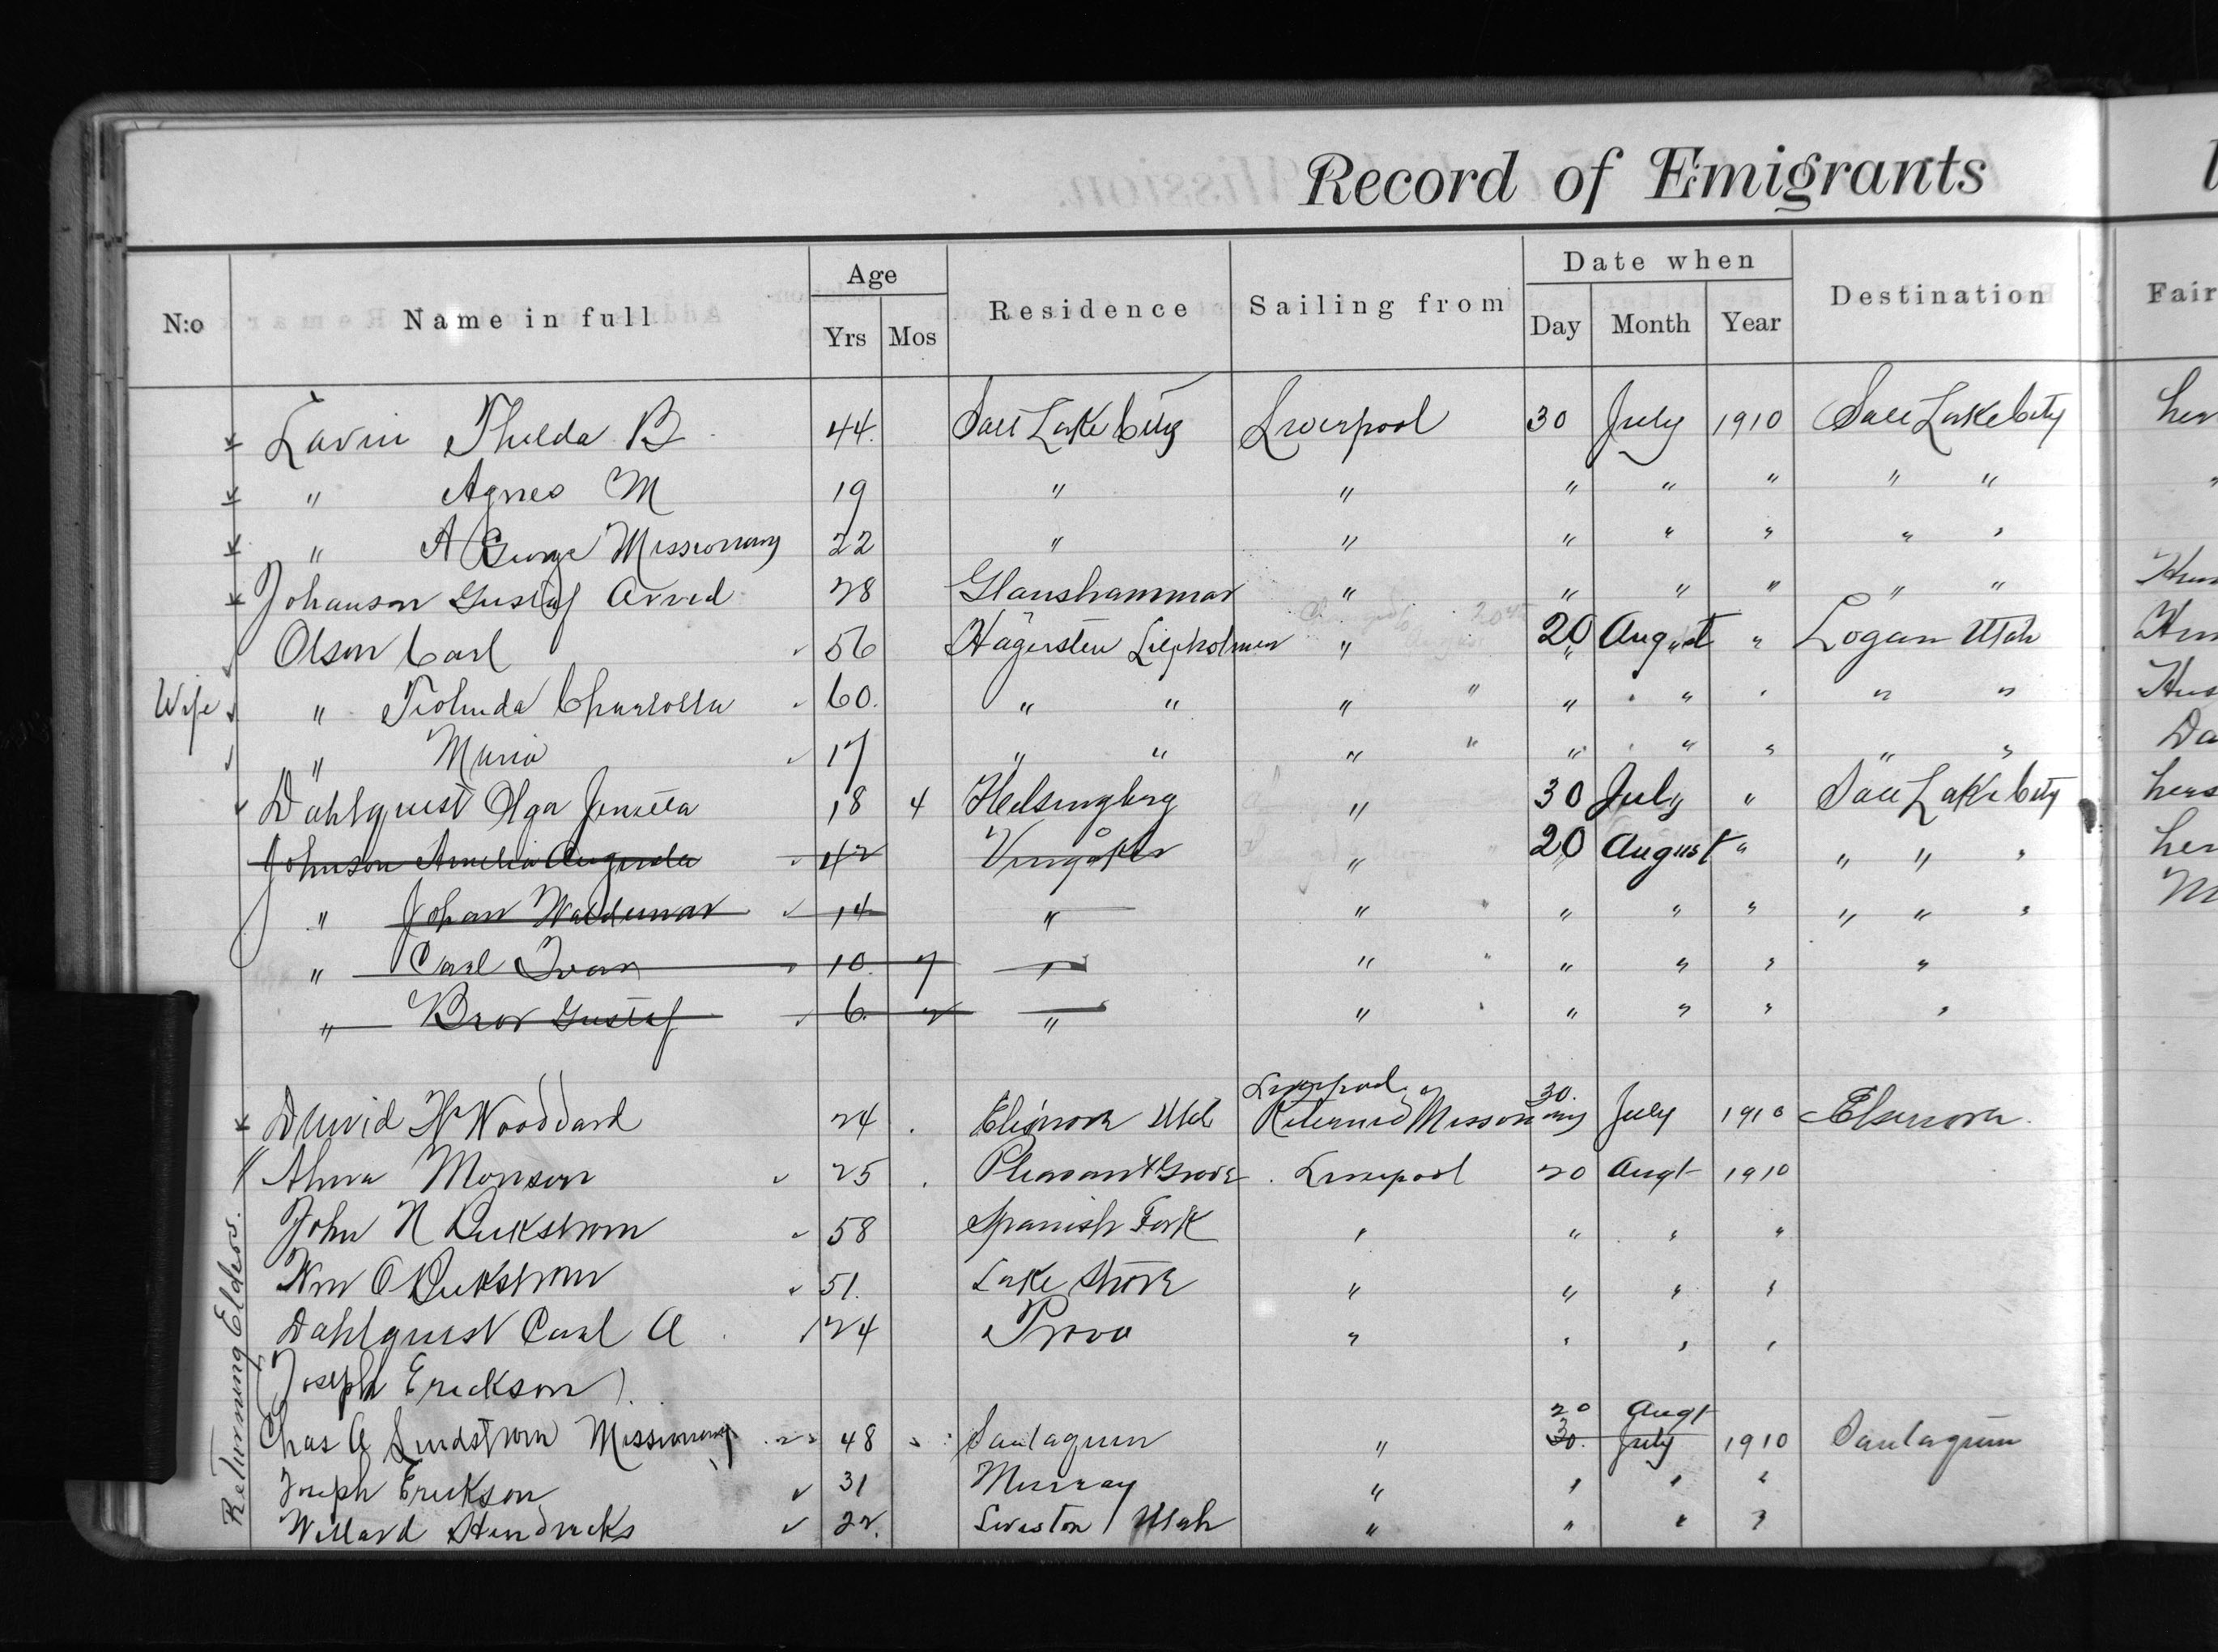 Record of Emigrants
N:o Name in full Age Yrs Mos Residence Sailing from Date when Day Month Year Destination Fair
Lavin Thilda B 44. Salt Lake City Liverpool 30 July 1910 Salt Lake City her
" Agnes M 19 " " " " " " "
" A George Missionary 22 " " " " " " "
Johanson Gustaf Arvid 28 Glanshammar " " " " " "
Olson Carl 56 Hägersten Liljeholmen " 20 August " Logan Utah
Wife " Charlotta 60. " " " " " " " " "
" Maria 17 " " " " " " " " "
Dahlquist Olga 18 4 Helsingborg " 30 July " Salt Lake City
Johnson Amelia Augusta 42 Vingåker " 20 August " " " "
" Johan Waldemar 14 " " " " " " " "
" Carl Ivan 10. 7 " " " " " "
" Gustaf 6. 2 " " " " " "
Liverpool 30.
David W Woddard 24 Elsinore Utah Returned Missionary July 1910 Elsinore.
Alma Monson 25 Pleasant Grove Liverpool 20 Augt 1910
John N 58 Spanish Fork " " " "
Wm O 51. Lake Shore " " " "
Dahlquist Carl A 24 Provo " " " "
Joseph Erickson
20 Augt
Chas A Lindstrom Missionary 48 Santaquin " 30. July 1910 Santaquin
Joseph Erickson 31 Murray " " " "
Willard Hendricks 22. Lewiston Utah " " " "
Returning Elders.